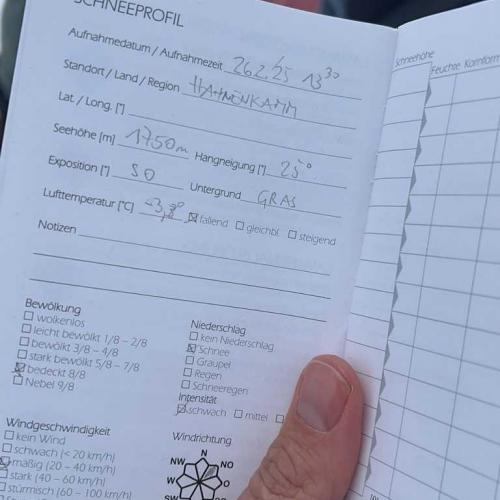 SCHNEEPROFIL
Aufnahmedatum / Aufnahmezeit 26.2./25 13³⁰
Standort / Land / Region HAHNENKAMM
Lat. / Long. [°]
Seehöhe [m] 1750m Hangneigung [°] 25°
Exposition [°] SO Untergrund GRAS
Lufttemperatur [°C] ☒ fallend ☐ gleichbl. ☐ steigend
Notizen
Bewölkung
☐ wolkenlos
☐ leicht bewölkt 1/8 – 2/8
☐ bewölkt 3/8 – 4/8
☐ stark bewölkt 5/8 – 7/8
☒ bedeckt 8/8
☐ Nebel 9/8
Niederschlag
☐ kein Niederschlag
☒ Schnee
☐ Graupel
☐ Regen
☐ Schneeregen
Intensität
☒ schwach ☐ mittel ☐
Windgeschwindigkeit
☐ kein Wind
☐ schwach (< 20 km/h)
☒ mäßig (20 – 40 km/h)
☐ stark (40 – 60 km/h)
☐ stürmisch (60 – 100 km/h)
Windrichtung
N
NW NO
W O
SW
Schneehöhe
Feuchte Kornform